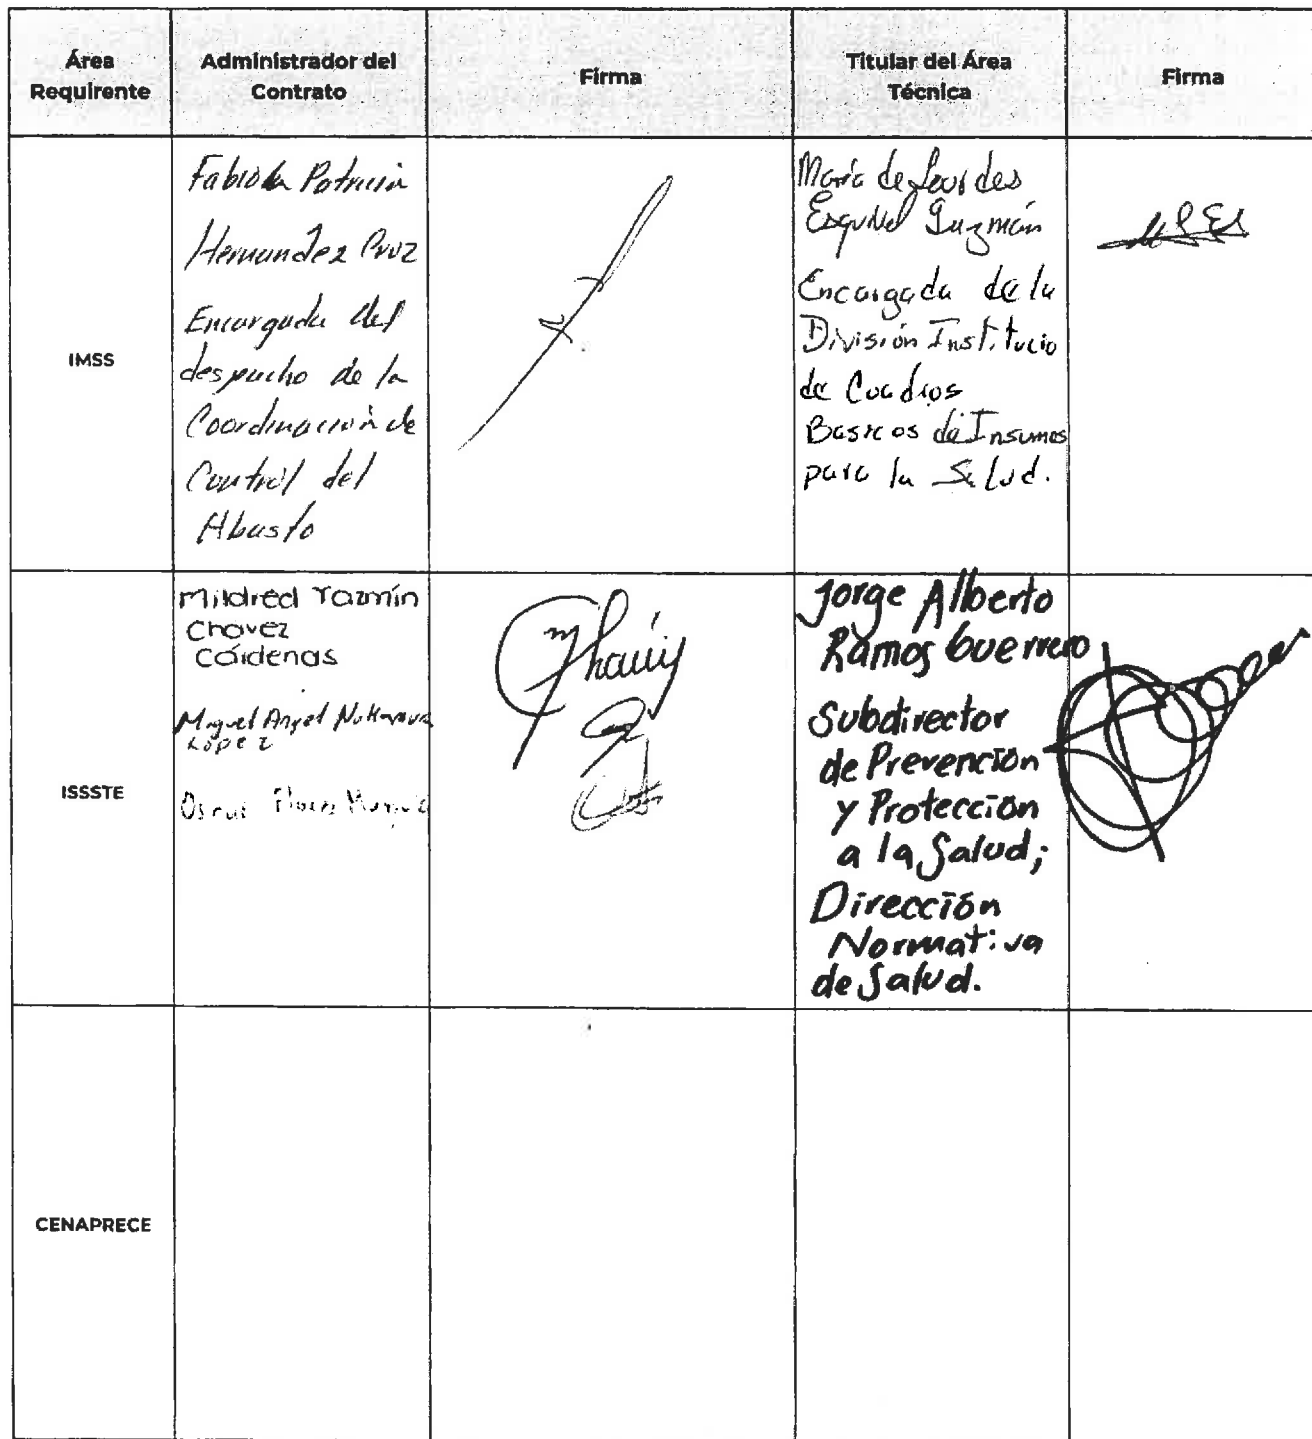 Área
Requirente
Administrador del
Contrato
Firma
Titular del Área
Técnica
Firma
IMSS
Fabiola Patricia
Hernandez Cruz
Encargada del
despacho de la
Coordinación de
Control del
Abasto
María de Lourdes
Esquivel Guzmán
Encargada de la
División Institucio
de Cuadros
Basicos de Insumos
para la Salud.
ISSSTE
Mildred Yazmín
Chavez
Cárdenas
Miguel Angel
López
Oscar Flores
Jorge Alberto
Ramos Guerrero
Subdirector
de Prevención
y Protección
a la Salud;
Dirección
Normativa
de Salud.
CENAPRECE